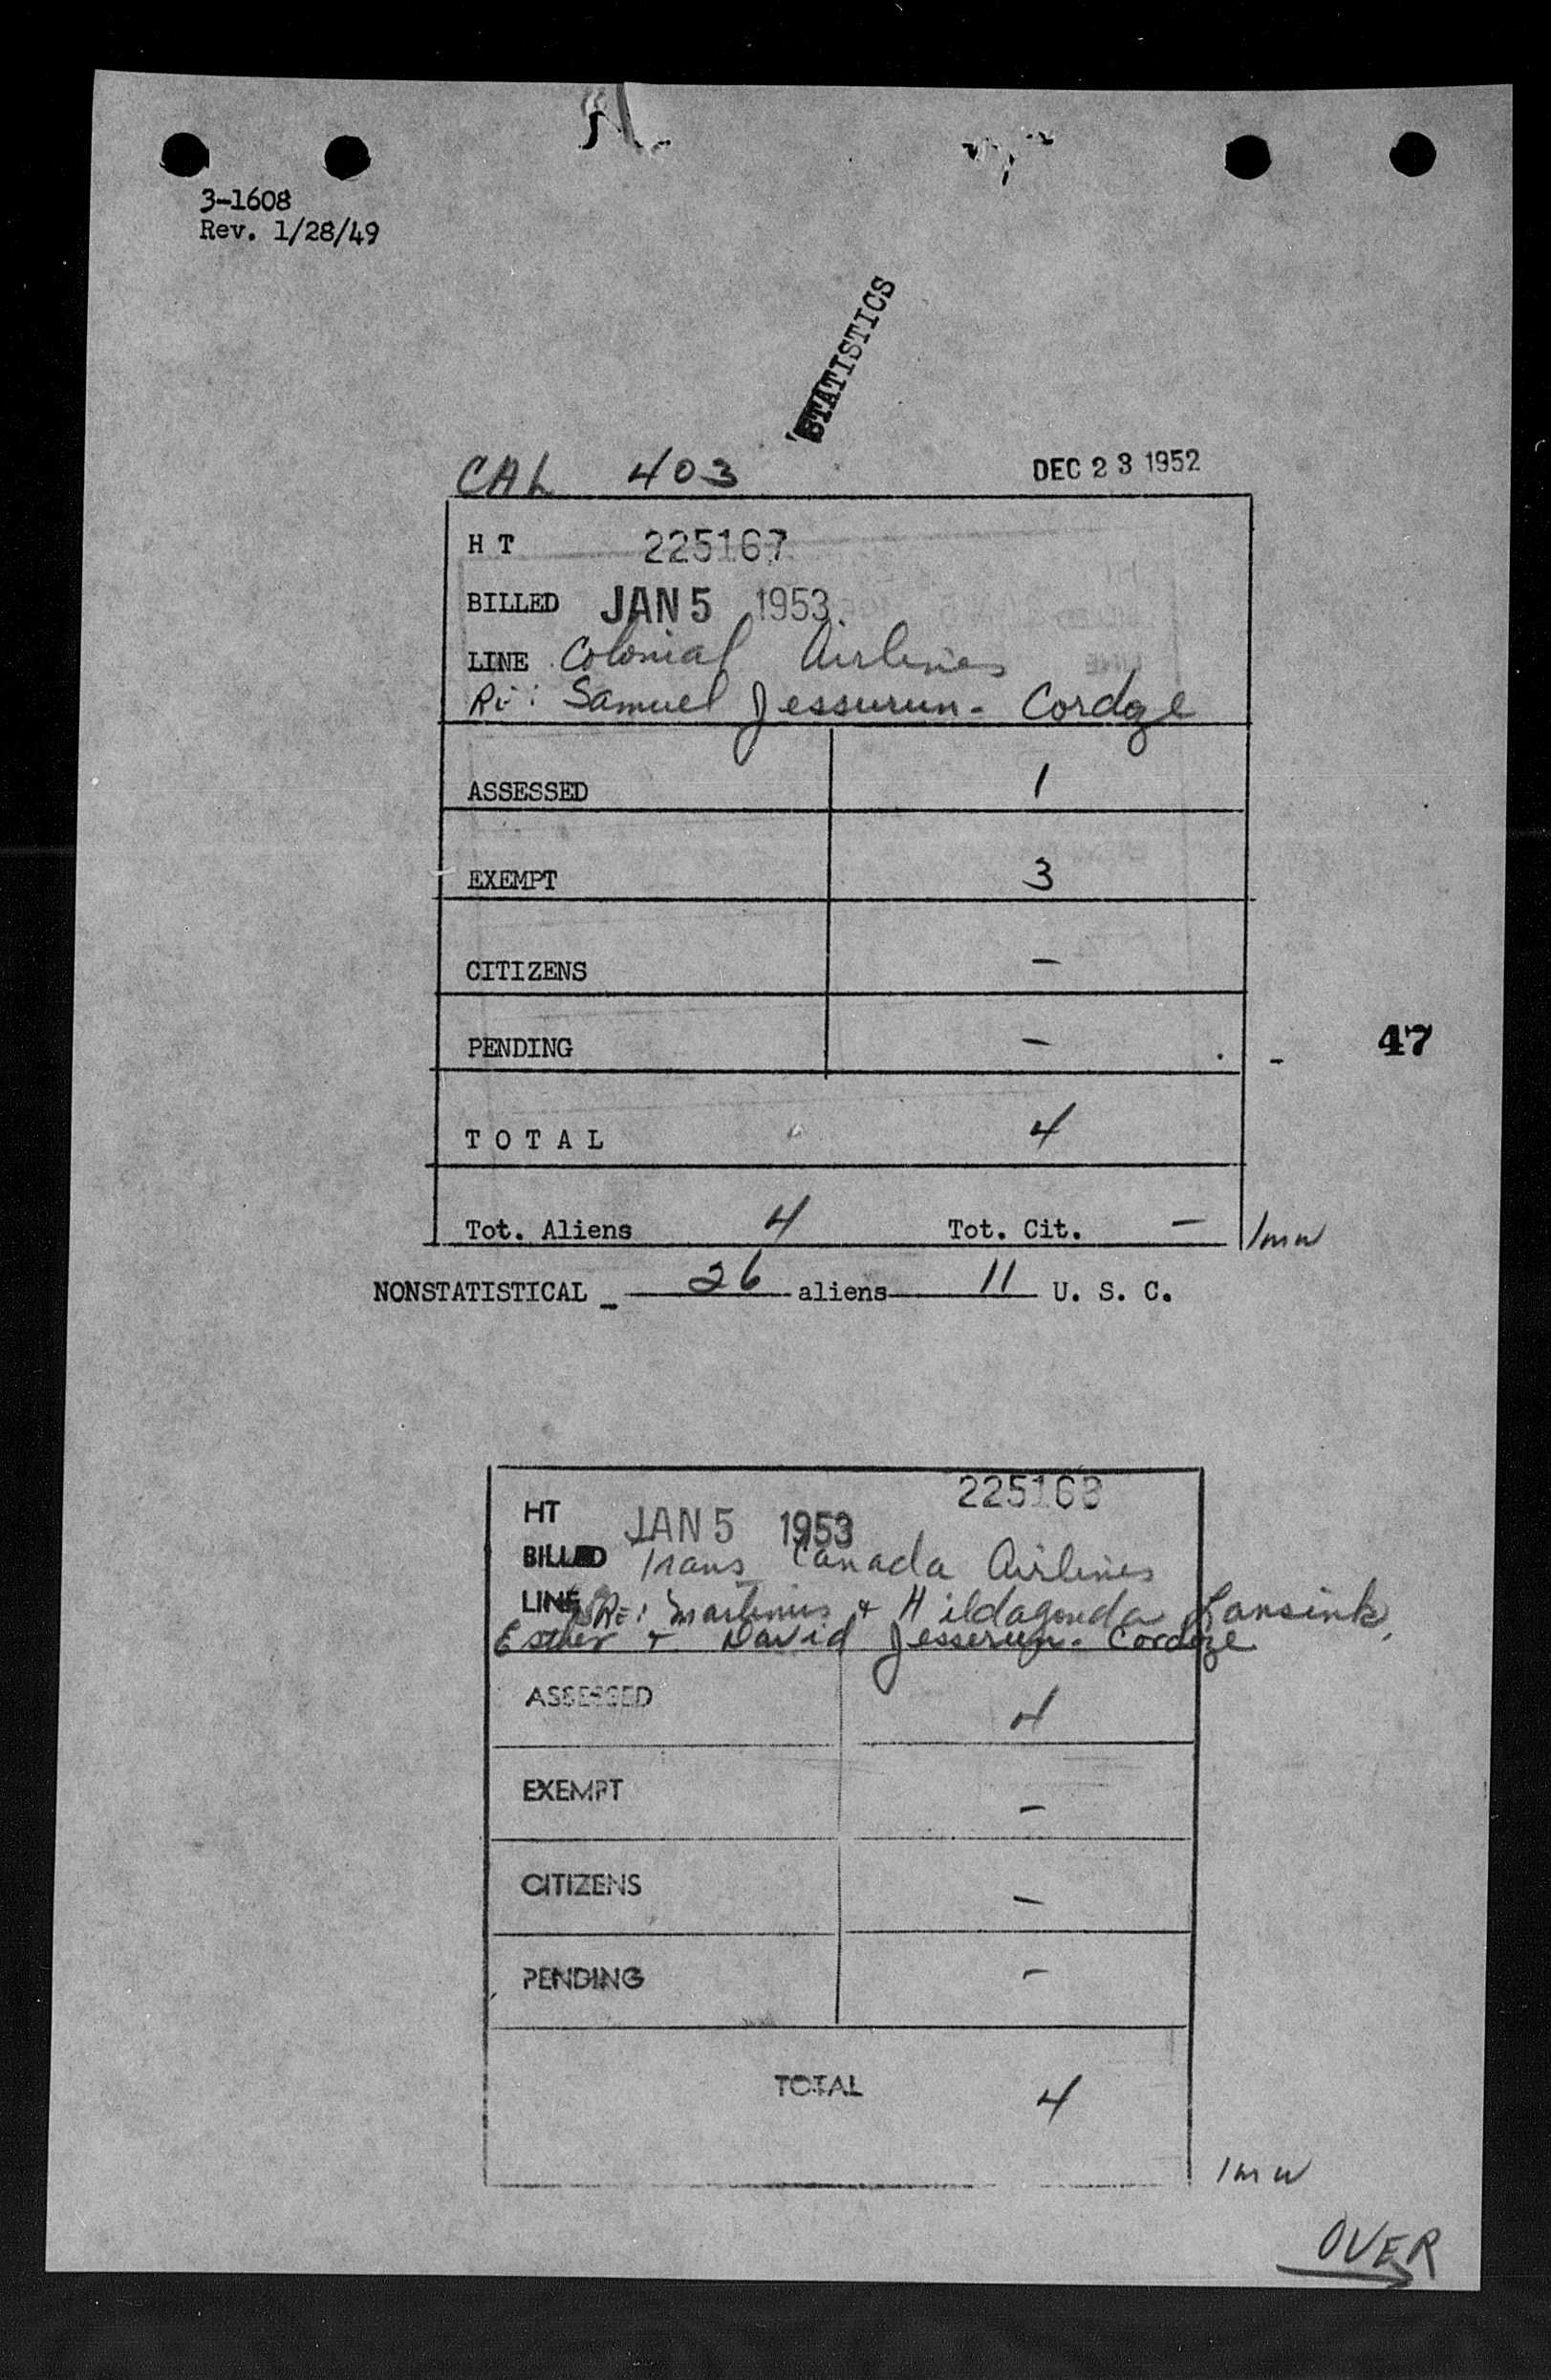 3-1608
Rev. 1/28/49
STATISTICS
CAL 403 DEC 23 1952
H T 225167
BILLED JAN 5 1953
LINE Colonial Airlines
Re: Samuel Jessurun - Cordoze
ASSESSED 1
EXEMPT 3
CITIZENS –
PENDING –
47
T O T A L 4
Tot. Aliens 4 Tot. Cit. – lmw
NONSTATISTICAL - 26 aliens 11 U. S. C.
225168
HT JAN 5 1953
BILLED Trans Canada Airlines
LINE Re: Martinus + Hildagonda Lansink,
Esther + David Jesserun - Cordoze
ASSESSED 4
EXEMPT –
CITIZENS –
PENDING –
TOTAL 4
lmw
OVER